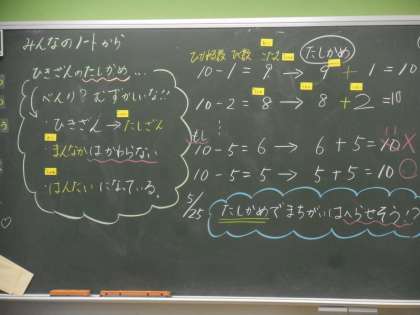 みんなのノートから
ひきざんのたしかめ…
べんり？むずかしいな!!
・ひきざん→たしざん
・まんなかはかわらない
・はんたいになっている。
ひかれる数 ひく数 こたえ たしかめ
10－1＝9→9＋1＝10
10－2＝8→8＋2＝10
もし
10－5＝6→6＋5＝10×
10－5＝5→5＋5＝10○
5/25
たしかめでまちがいはへらせそう!